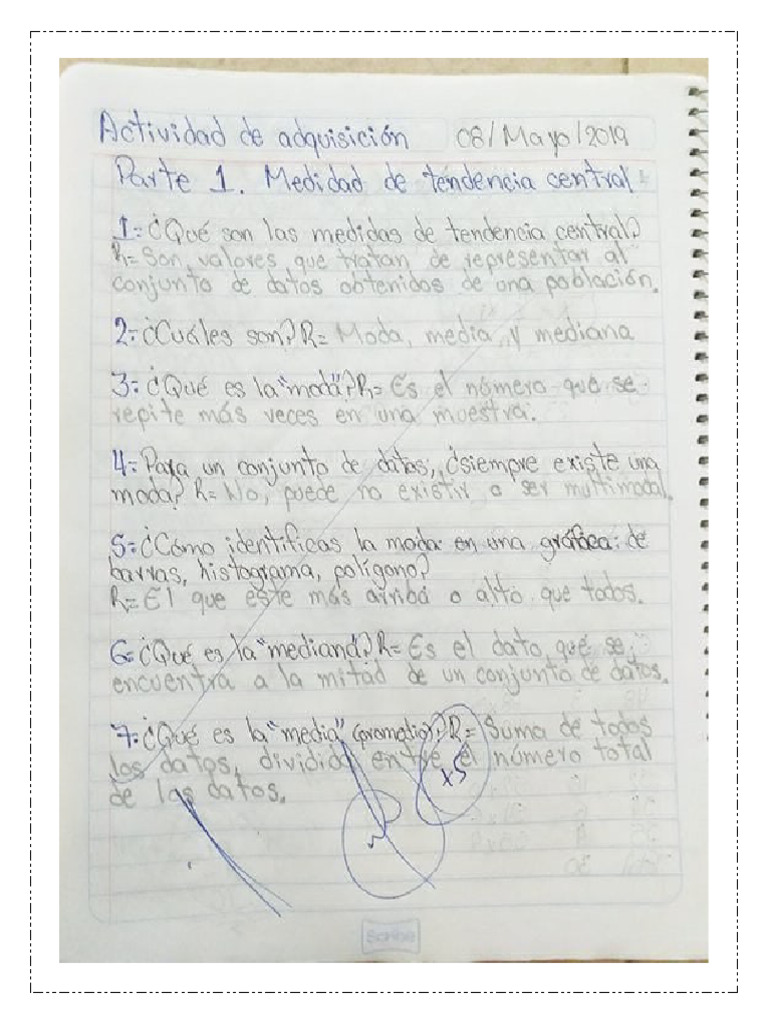 Actividad de adquisición 08/Mayo/2019
Parte 1. Medidad de tendencia central
1= ¿Qué son las medidas de tendencia central?
R= Son valores que tratan de representar al
conjunto de datos obtenidos de una población.
2= ¿Cuáles son? R= Moda, media, y mediana
3= ¿Qué es la "moda"? R= Es el número que se
repite más veces en una muestra.
4= Para un conjunto de datos, ¿siempre existe una
moda? R= No, puede no existir o ser multimodal.
5= ¿Cómo identificas la moda en una gráfica: de
barras, histograma, polígono?
R= El que este más arriba o alto que todos.
6= ¿Qué es la "mediana"? R= Es el dato que se
encuentra a la mitad de un conjunto de datos.
7= ¿Qué es la "media" (promedio)? R= Suma de todos
los datos, dividido entre el número total
de los datos.
x5
Scribe